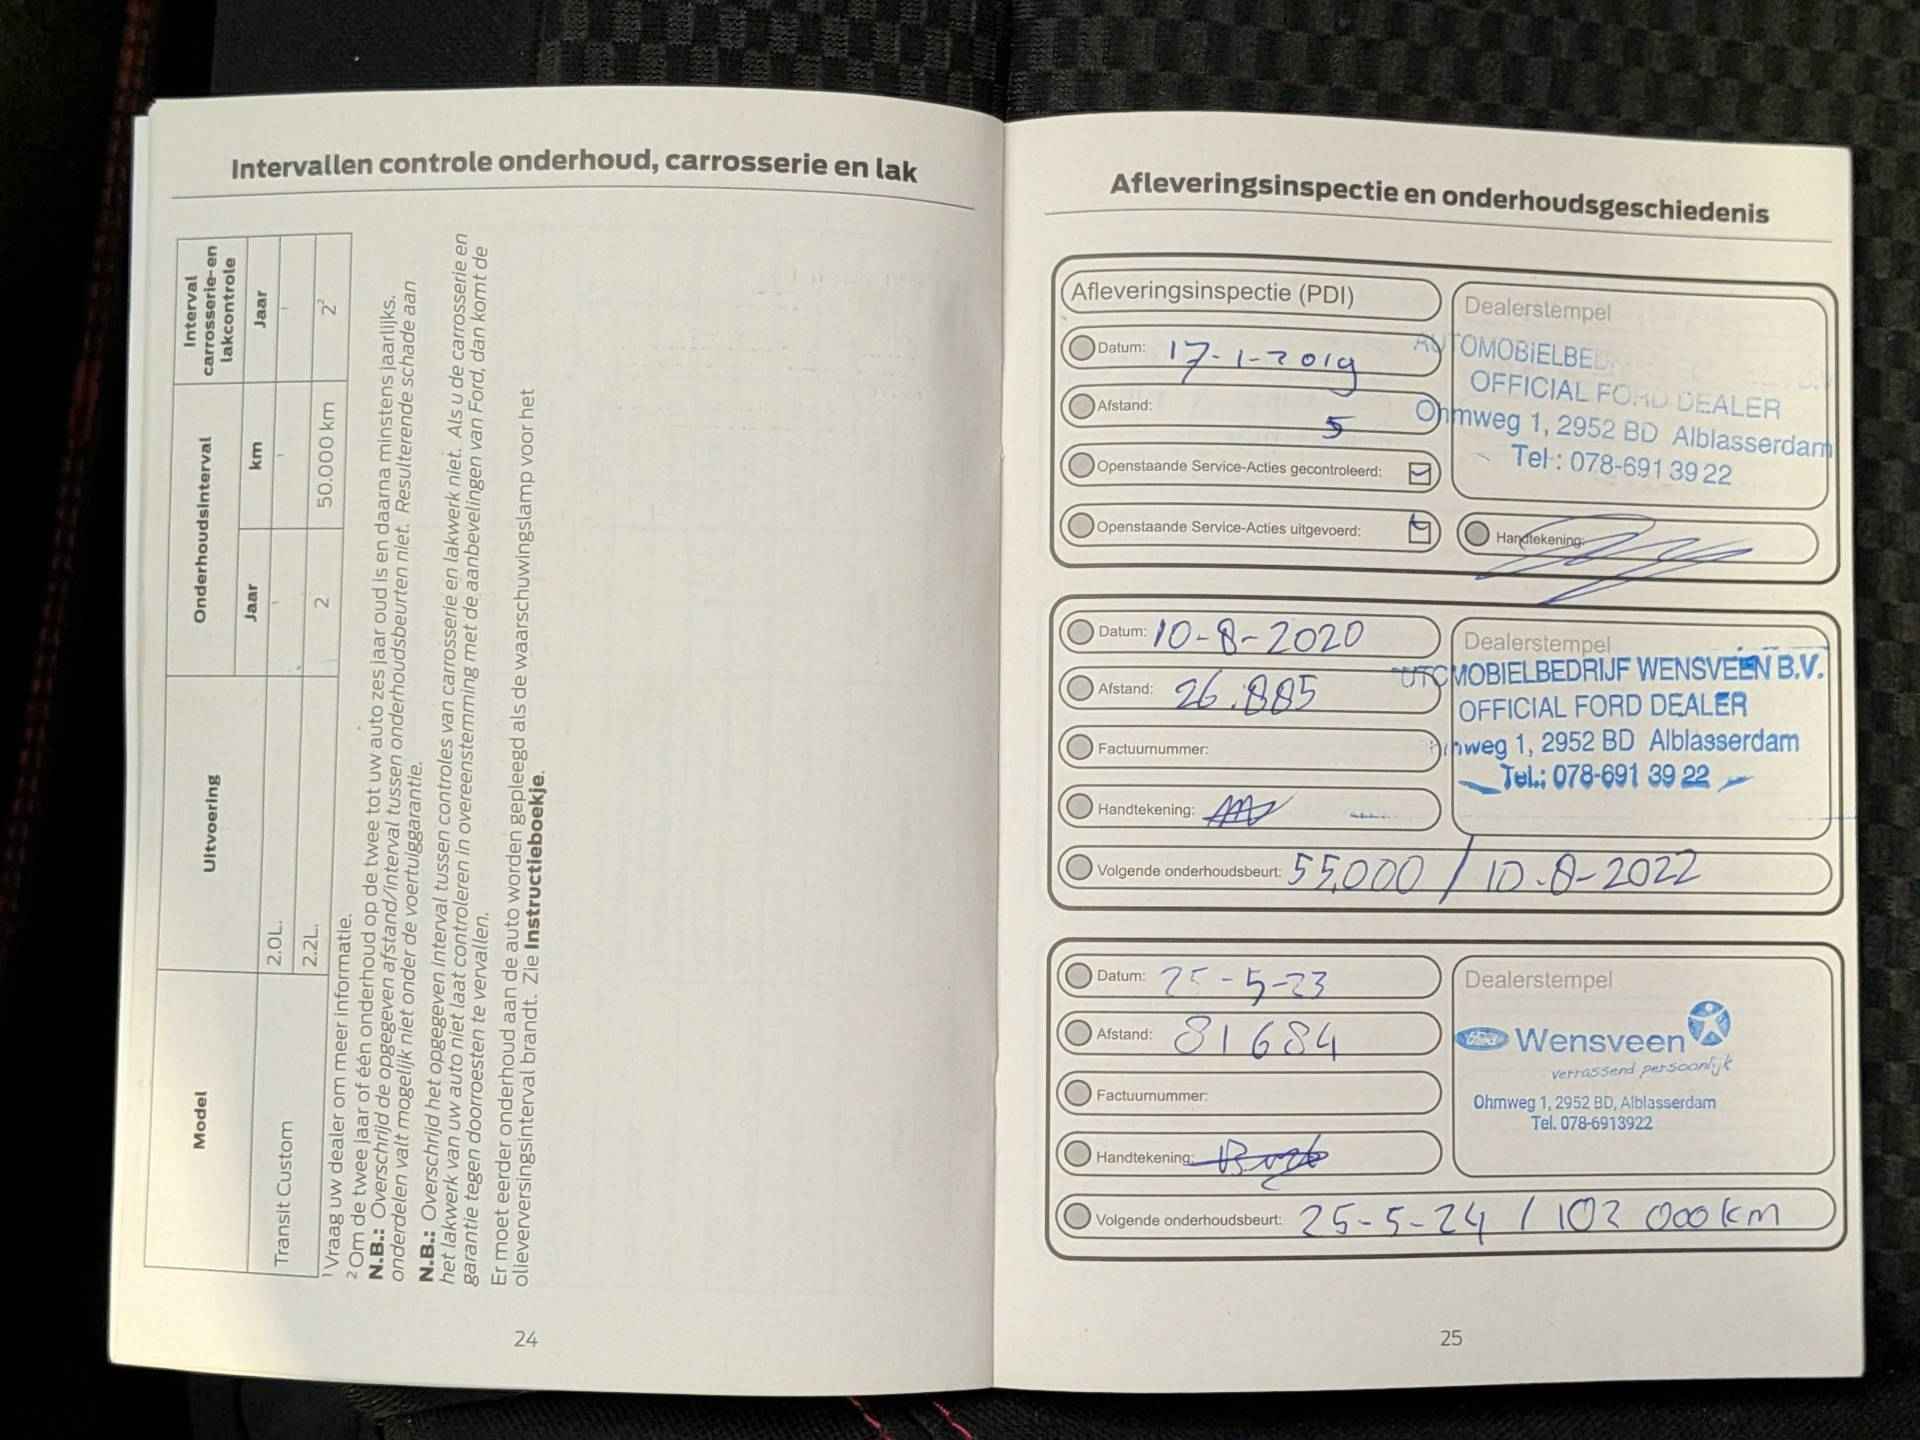 Intervallen controle onderhoud, carrosserie en lak
Model
Uitvoering
Onderhoudsinterval
Interval
carrosserie-en
lakcontrole
Jaar
km
Jaar
Transit Custom
2.0L.
2.2L.
2
50.000 km
2²
¹ Vraag uw dealer om meer informatie.
² Om de twee jaar of één onderhoud op de twee tot uw auto zes jaar oud is en daarna minstens jaarlijks.
N.B.: Overschrijd de opgegeven afstand/interval tussen onderhoudsbeurten niet. Resulterende schade aan
onderdelen valt mogelijk niet onder de voertuiggarantie.
N.B.: Overschrijd het opgegeven interval tussen controles van carrosserie en lakwerk niet. Als u de carrosserie en
het lakwerk van uw auto niet laat controleren in overeenstemming met de aanbevelingen van Ford, dan komt de
garantie tegen doorroesten te vervallen.
Er moet eerder onderhoud aan de auto worden gepleegd als de waarschuwingslamp voor het
olieverversingsinterval brandt. Zie Instructieboekje.
24
Afleveringsinspectie en onderhoudsgeschiedenis
Afleveringsinspectie (PDI)
Datum: 17-1-2019
Afstand: 5
Openstaande Service-Acties gecontroleerd:
Openstaande Service-Acties uitgevoerd:
Dealerstempel
AUTOMOBIELBE
OFFICIAL FORD DEALER
Ohmweg 1, 2952 BD Alblasserdam
Tel.: 078-691 39 22
Handtekening:
Datum: 10-8-2020
Afstand: 26.885
Factuurnummer:
Handtekening:
Volgende onderhoudsbeurt: 55.000 / 10-8-2022
Dealerstempel
UTOMOBIELBEDRIJF WENSVEEN B.V.
OFFICIAL FORD DEALER
hmweg 1, 2952 BD Alblasserdam
Tel.: 078-691 39 22
Datum: 25-5-23
Afstand: 81684
Factuurnummer:
Handtekening:
Volgende onderhoudsbeurt: 25-5-24 / 102 000 km
Dealerstempel
Ford Wensveen
verrassend persoonlijk
Ohmweg 1, 2952 BD, Alblasserdam
Tel. 078-6913922
25